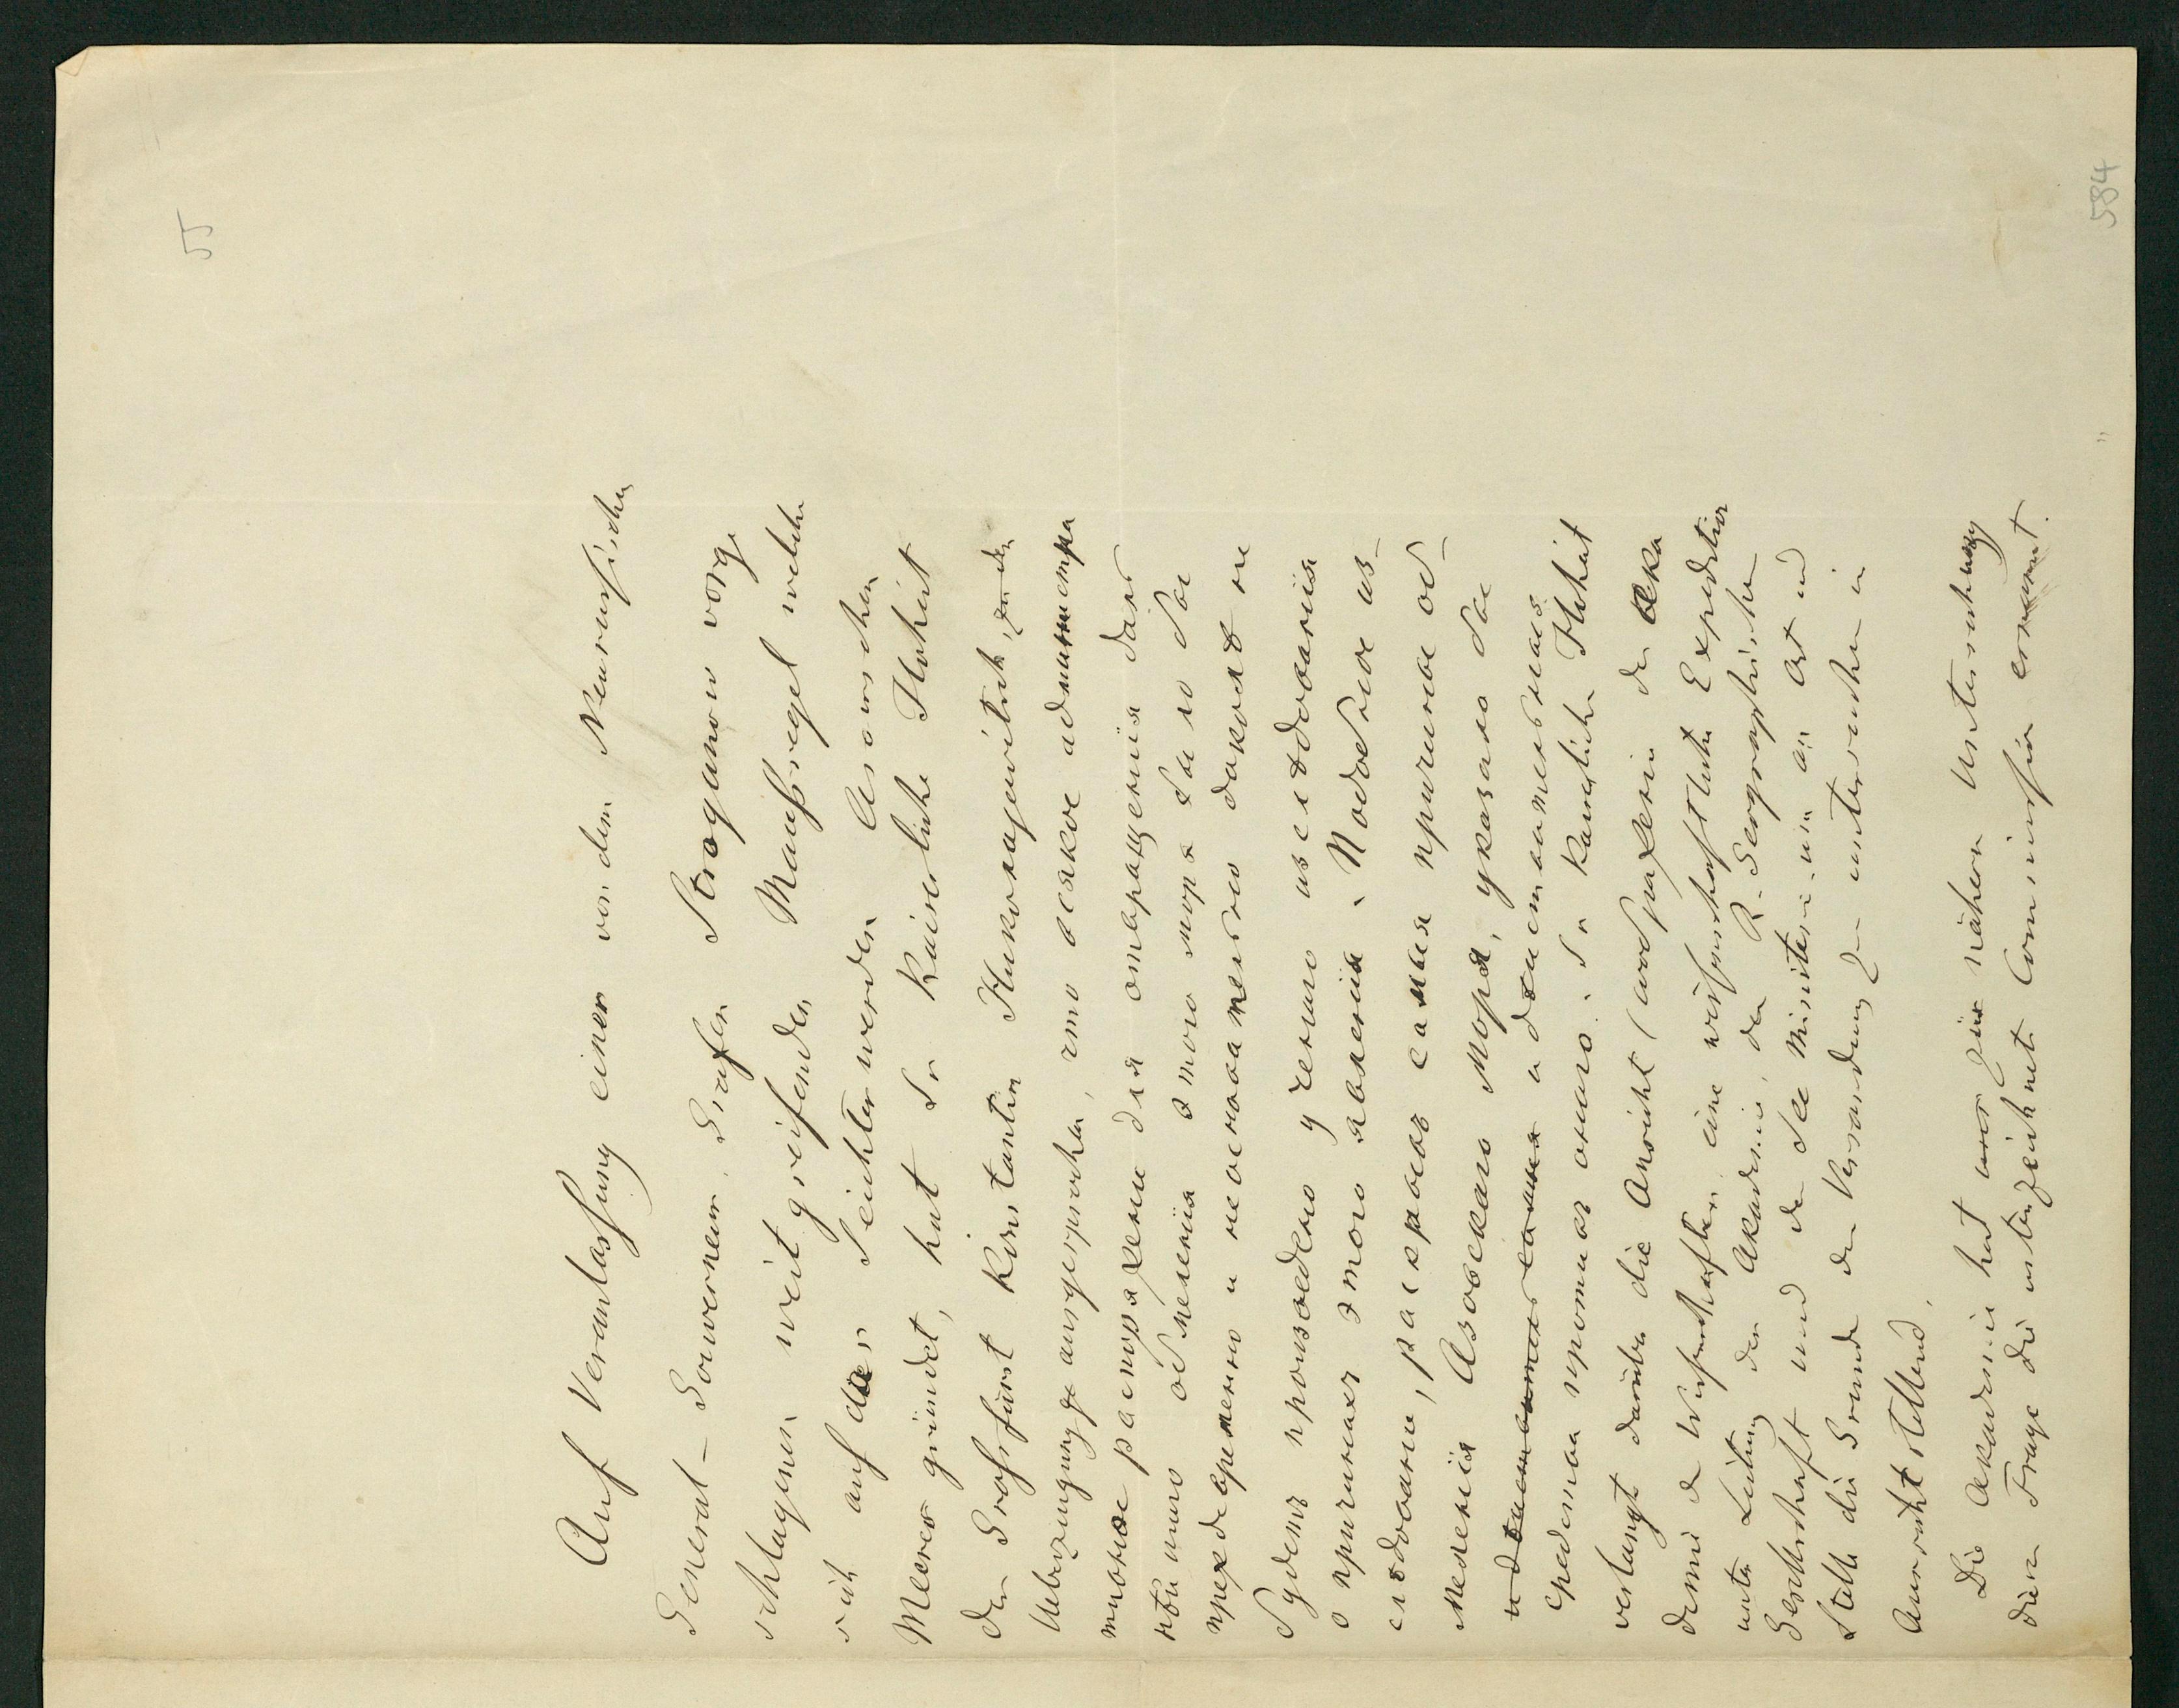 55
Auf Veranlassung einer von dem Neurussischen
General-Gouverneur, Grafen Stroganow vorge
schlagenen weit greifenden Maaßregel welche
sich auf das Seichterwerden Asowschen
Meeres gründet, hat Sr Kaiserliche Hoheit
der Großfürst Konstantin Николаjewitsch, zu den
Ueberzeugung ausgesprochen, что всякое администра
тивное распоряжени для отвращения даль
нѣйшаго обмеления этого моря было бы
преждевременно и неосновательно доколѣ не
будетъ произведено ученаго изслѣдования
о причинахъ этого явления. Подобное из-
слѣдовани, раскрывъ самыя причины об-
меления Азовскаго моря, указало бы
и дѣйствительнейшия и дѣйствительныя
средства противъ онаго. Sr Kaiserliche Hoheit
verlangt darüber die Ansicht (соображени der Aka
demie der Wissenschaften eine wissenschaftliche Expedition
unter Leitung der Akademie, der R. Geographischen
Gesellschaft und des See Ministeriums an Ort und
Stelle die Gründe der Versandung zu untersuchen in
Aussicht stellend.
Die Akademie hat zur nähern Untersuchung
dieser Frage die unterzeichnete Commission ernannt.
584